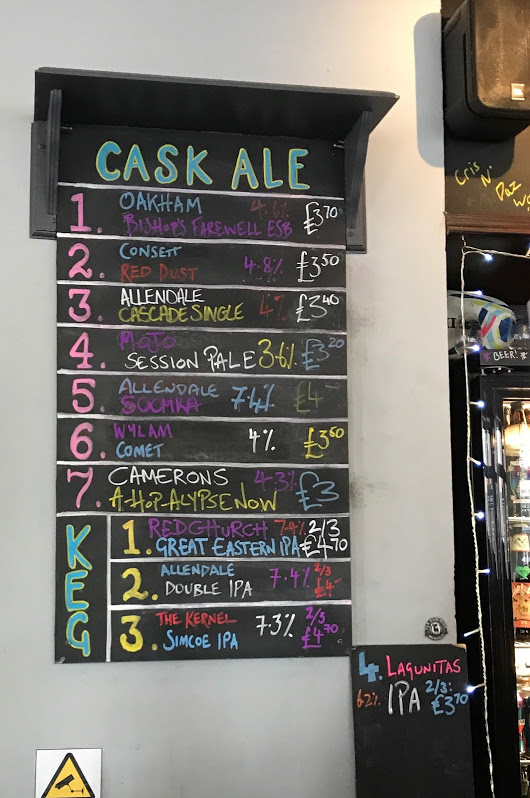 CASK ALE
1. OAKHAM 4.6% £3.70
BISHOP'S FAREWELL ESB
2. CONSETT 4.8% £3.50
RED DUST
3. ALLENDALE 4.7 £3.40
CASCADE SINGLE
4. MOJO 3.6% £3.20
SESSION PALE
5. ALLENDALE 7.4% £4-
6. WYLAM 4% £3.60
COMET
7. CAMERONS 4.3% £3
A-HOP-ALYPSE NOW
KEG
1. REDCHURCH 7.4% 2/3
GREAT EASTERN IPA £4.70
2. ALLENDALE 7.4% 2/3
DOUBLE IPA £4-
3. THE KERNEL 7.3% 2/5
SIMCOE IPA £4.70
4. LAGUNITAS
6.2% IPA 2/3: £3.70
CRIS N.
DAZ
BEER!